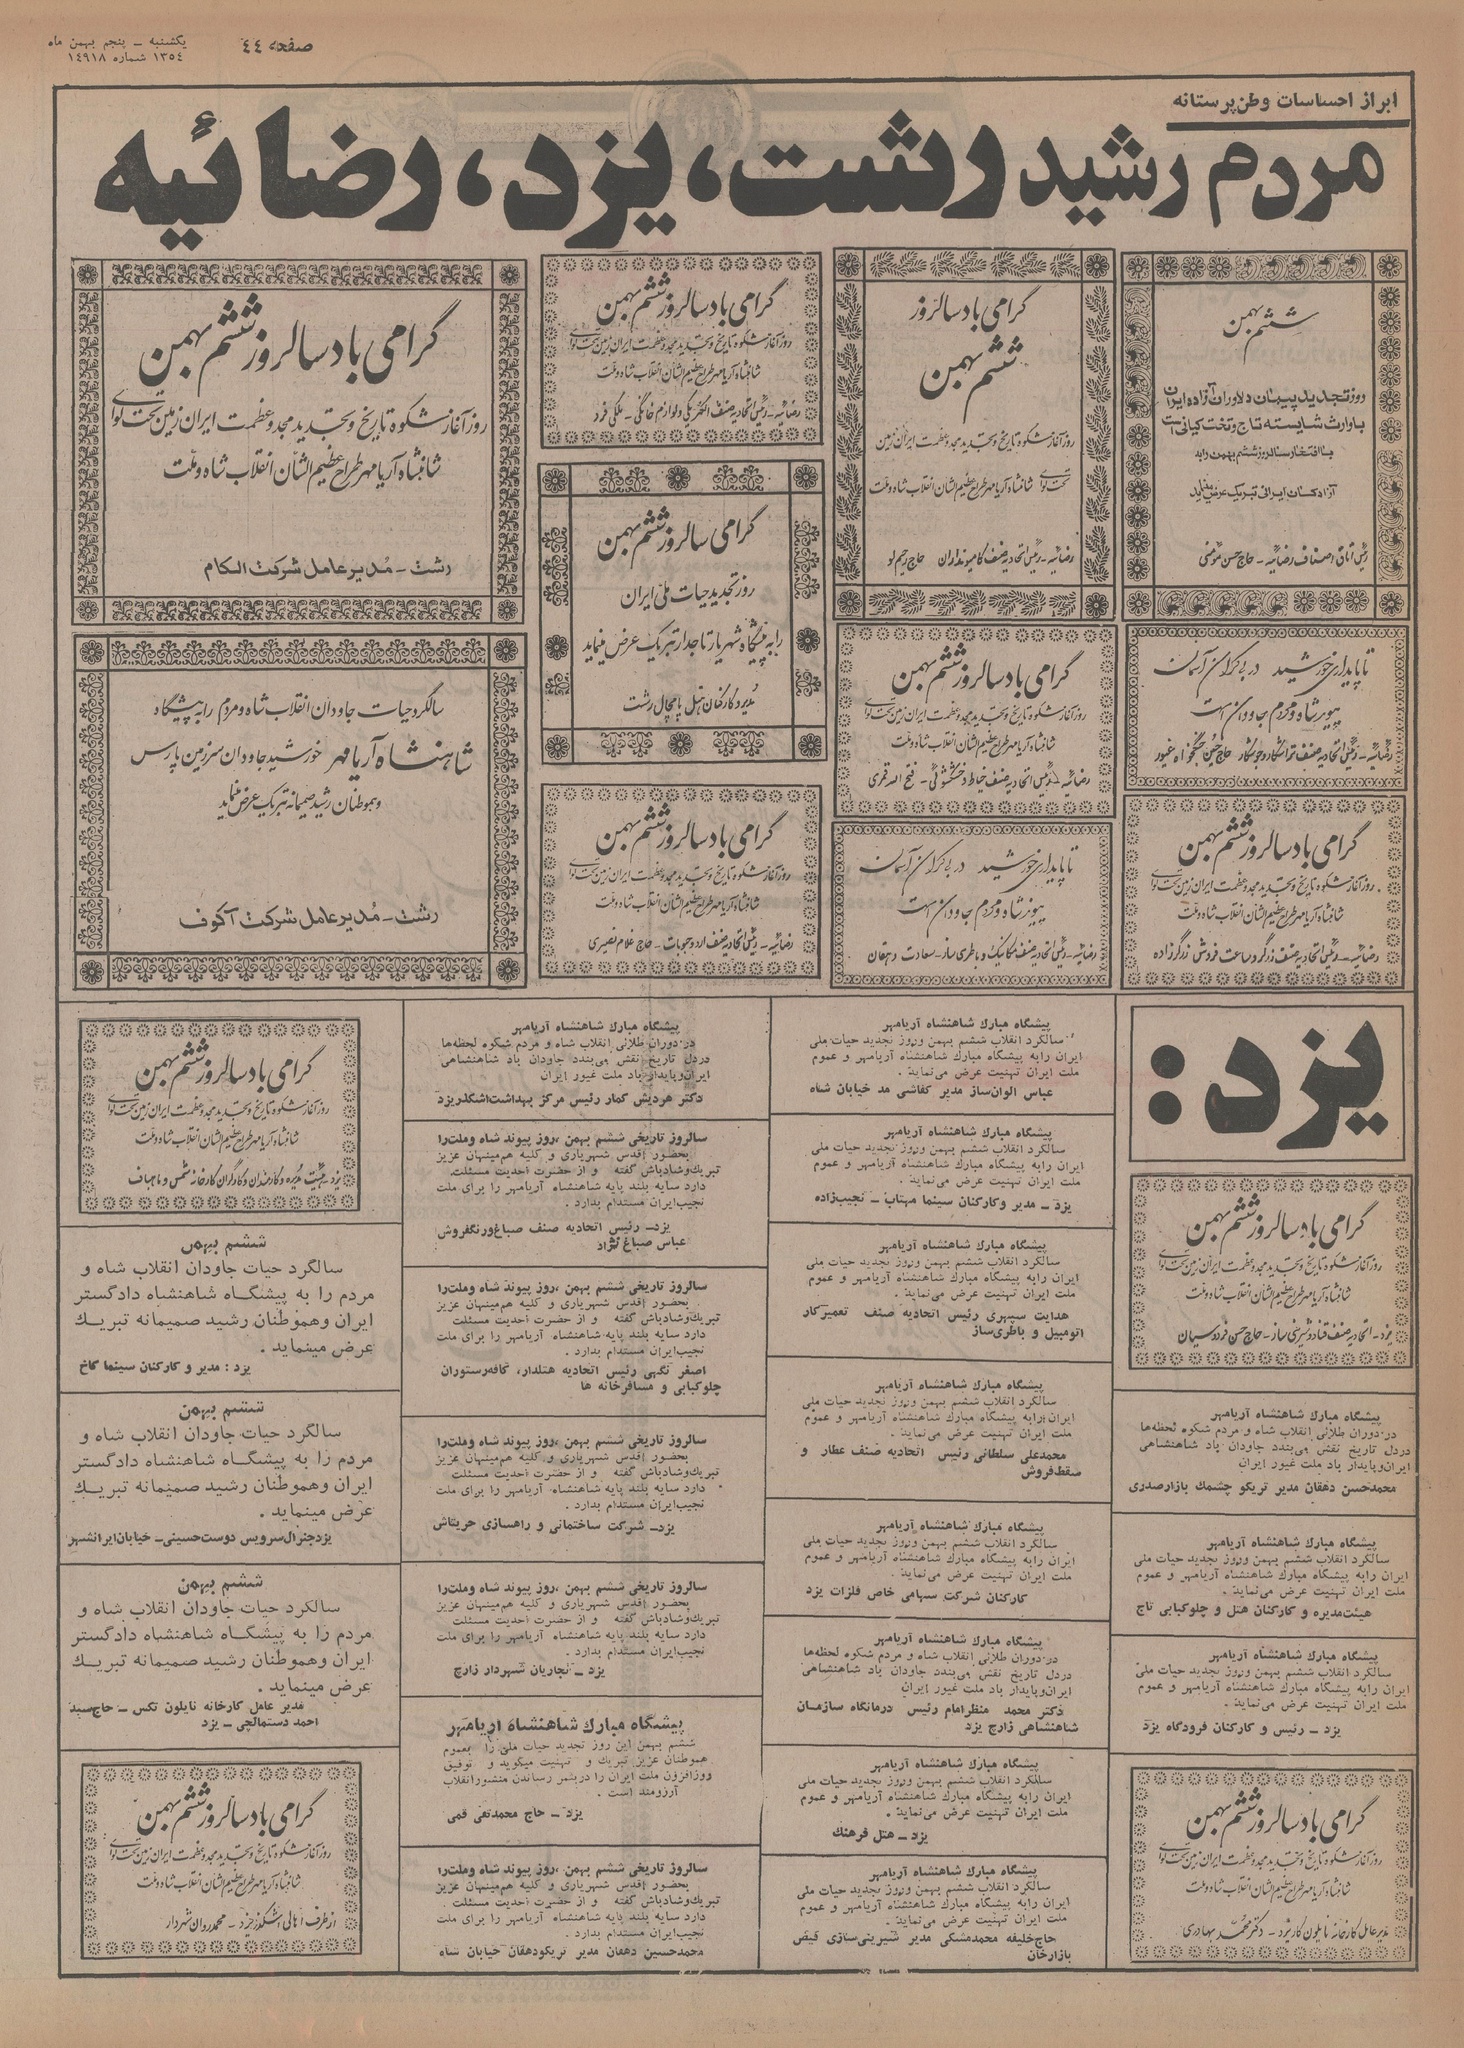 یکشنبه - پنجم بهمن ماه
۱۳۵٤ شماره ۱٤۹۱۸
صفحه ٤٤
ابراز احساسات وطن‌پرستانه
مردم رشید رشت، یزد، رضائیه
ششم بهمن
روز تجدید پیمان دلاوران آزاده ایران
با وارث شایسته تاج و تخت کیانی است
با افتخار سالروز ششم بهمن را به
آزادگان ایرانی تبریک عرض مینماید
رئیس اتاق اصناف رضائیه - حاج حسن مؤمنی
گرامی باد سالروز
ششم بهمن
روز آغاز شکوه تاریخ و تجدید مجد و عظمت ایران زمین
تحت لوای شاهنشاه آریامهر طراح عظیم الشان انقلاب شاه و ملت
رضائیه - رئیس اتحادیه صنف کامیونداران حاج رحیم لو
گرامی باد سالروز ششم بهمن
روز آغاز شکوه تاریخ و تجدید مجد و عظمت ایران زمین تحت لوای
شاهنشاه آریامهر طراح عظیم الشان انقلاب شاه و ملت
رضائیه - رئیس اتحادیه صنف الکتریکی و لوازم خانگی - ملکی فرد
گرامی باد سالروز ششم بهمن
روز آغاز شکوه تاریخ و تجدید مجد و عظمت ایران زمین تحت لوای
شاهنشاه آریامهر طراح عظیم الشان انقلاب شاه و ملت
رشت - مدیر عامل شرکت الکام
گرامی سالروز ششم بهمن
روز تجدید حیات ملی ایران
را به پیشگاه شهریار تاجدار تبریک عرض مینماید
مدیر و کارکنان هتل پامچال رشت
تا پایداری خورشید در بی‌کران آسمان
پیوند شاه و مردم جاودان است
رضائیه - رئیس اتحادیه صنف تراشکار و جوشکار حاج حسین جنگخواه غیور
گرامی باد سالروز ششم بهمن
روز آغاز شکوه تاریخ و تجدید مجد و عظمت ایران زمین تحت لوای
شاهنشاه آریامهر طراح عظیم الشان انقلاب شاه و ملت
رضائیه - رئیس اتحادیه صنف خیاط و خشکشوئی - فتح اله قمری
سالگرد حیات جاودان انقلاب شاه و مردم را به پیشگاه
شاهنشاه آریامهر خورشید جاودان سرزمین پارس
و هموطنان رشید صمیمانه تبریک عرض مینماید
رشت - مدیر عامل شرکت آکوف
گرامی باد سالروز ششم بهمن
روز آغاز شکوه تاریخ و تجدید مجد و عظمت ایران زمین تحت لوای
شاهنشاه آریامهر طراح عظیم الشان انقلاب شاه و ملت
رضائیه - رئیس اتحادیه صنف زرگر و ساعت فروش زرگرزاده
تا پایداری خورشید در بی‌کران آسمان
پیوند شاه و مردم جاودان است
رضائیه - رئیس اتحادیه صنف مکانیک و باطری ساز - سعادت دهقان
گرامی باد سالروز ششم بهمن
روز آغاز شکوه تاریخ و تجدید مجد و عظمت ایران زمین تحت لوای
شاهنشاه آریامهر طراح عظیم الشان انقلاب شاه و ملت
رضائیه - رئیس اتحادیه صنف ارد و حبوبات - حاج غلام نصیری
یزد:
گرامی باد سالروز ششم بهمن
روز آغاز شکوه تاریخ و تجدید مجد و عظمت ایران زمین تحت لوای
شاهنشاه آریامهر طراح عظیم الشان انقلاب شاه و ملت
یزد - اتحادیه صنف قناد و شیرینی ساز - حاج حسن فردوسیان
پیشگاه مبارك شاهنشاه آریامهر
در دوران طلائی انقلاب شاه و مردم شکوه لحظه‌ها
در دل تاریخ نقش می‌بندد جاودان باد شاهنشاهی
ایران و پایدار باد ملت غیور ایران
محمدحسن دهقان مدیر تریکو چشمك بازارصدری
پیشگاه مبارك شاهنشاه آریامهر
سالگرد انقلاب ششم بهمن و روز تجدید حیات ملی
ایران را به پیشگاه مبارك شاهنشاه آریامهر و عموم
ملت ایران تهنیت عرض می‌نماید.
هیئت‌مدیره و کارکنان هتل و چلوکبابی تاج
پیشگاه مبارك شاهنشاه آریامهر
سالگرد انقلاب ششم بهمن و روز تجدید حیات ملی
ایران را به پیشگاه مبارك شاهنشاه آریامهر و عموم
ملت ایران تهنیت عرض می‌نماید.
یزد - رئیس و کارکنان فرودگاه یزد
گرامی باد سالروز ششم بهمن
روز آغاز شکوه تاریخ و تجدید مجد و عظمت ایران زمین تحت لوای
شاهنشاه آریامهر طراح عظیم الشان انقلاب شاه و ملت
مدیر عامل کارخانه نایلون کار یزد - دکتر محمد بهادری
پیشگاه مبارك شاهنشاه آریامهر
سالگرد انقلاب ششم بهمن و روز تجدید حیات ملی
ایران را به پیشگاه مبارك شاهنشاه آریامهر و عموم
ملت ایران تهنیت عرض می‌نماید.
عباس الوان‌ساز مدیر کفاشی مد خیابان شاه
پیشگاه مبارك شاهنشاه آریامهر
سالگرد انقلاب ششم بهمن و روز تجدید حیات ملی
ایران را به پیشگاه مبارك شاهنشاه آریامهر و عموم
ملت ایران تهنیت عرض می‌نماید.
یزد - مدیر و کارکنان سینما مهتاب - نجیب‌زاده
پیشگاه مبارك شاهنشاه آریامهر
سالگرد انقلاب ششم بهمن و روز تجدید حیات ملی
ایران را به پیشگاه مبارك شاهنشاه آریامهر و عموم
ملت ایران تهنیت عرض می‌نماید.
هدایت سپهری رئیس اتحادیه صنف تعمیرکار
اتومبیل و باطری‌ساز
پیشگاه مبارك شاهنشاه آریامهر
سالگرد انقلاب ششم بهمن و روز تجدید حیات ملی
ایران را به پیشگاه مبارك شاهنشاه آریامهر و عموم
ملت ایران تهنیت عرض می‌نماید.
محمدعلی سلطانی رئیس اتحادیه صنف عطار و
سقط‌فروش
پیشگاه مبارك شاهنشاه آریامهر
سالگرد انقلاب ششم بهمن و روز تجدید حیات ملی
ایران را به پیشگاه مبارك شاهنشاه آریامهر و عموم
ملت ایران تهنیت عرض می‌نماید.
کارکنان شرکت سهامی خاص فلزات یزد
پیشگاه مبارك شاهنشاه آریامهر
در دوران طلائی انقلاب شاه و مردم شکوه لحظه‌ها
در دل تاریخ نقش می‌بندد جاودان باد شاهنشاهی
ایران و پایدار باد ملت غیور ایران
دکتر محمد منظر امام رئیس درمانگاه سازمان
شاهنشاهی زارچ یزد
پیشگاه مبارك شاهنشاه آریامهر
سالگرد انقلاب ششم بهمن و روز تجدید حیات ملی
ایران را به پیشگاه مبارك شاهنشاه آریامهر و عموم
ملت ایران تهنیت عرض می‌نماید.
یزد - هتل فرهنك
پیشگاه مبارك شاهنشاه آریامهر
سالگرد انقلاب ششم بهمن و روز تجدید حیات ملی
ایران را به پیشگاه مبارك شاهنشاه آریامهر و عموم
ملت ایران تهنیت عرض می‌نماید.
حاج‌خلیفه محمدمشکی مدیر شیرینی‌سازی فیض
بازارخان
پیشگاه مبارك شاهنشاه آریامهر
در دوران طلائی انقلاب شاه و مردم شکوه لحظه‌ها
در دل تاریخ نقش می‌بندد جاودان باد شاهنشاهی
ایران و پایدار باد ملت غیور ایران
دکتر هردیش کمار رئیس مرکز بهداشت اشکذر یزد
سالروز تاریخی ششم بهمن، روز پیوند شاه و ملت را
بحضور اقدس شهریاری و کلیه هم‌میهنان عزیز
تبریك و شادباش گفته و از حضرت احدیت مسئلت
دارد سایه بلند پایه شاهنشاه آریامهر را برای ملت
نجیب ایران مستدام بدارد.
یزد- رئیس اتحادیه صنف صباغ و رنگفروش
عباس صباغ نژاد
سالروز تاریخی ششم بهمن، روز پیوند شاه و ملت را
بحضور اقدس شهریاری و کلیه هم‌میهنان عزیز
تبریك و شادباش گفته و از حضرت احدیت مسئلت
دارد سایه بلند پایه شاهنشاه آریامهر را برای ملت
نجیب ایران مستدام بدارد.
اصغر نگهی رئیس اتحادیه هتلدار، کافه‌رستوران
چلوکبابی و مسافرخانه ها
سالروز تاریخی ششم بهمن، روز پیوند شاه و ملت را
بحضور اقدس شهریاری و کلیه هم‌میهنان عزیز
تبریك و شادباش گفته و از حضرت احدیت مسئلت
دارد سایه بلند پایه شاهنشاه آریامهر را برای ملت
نجیب ایران مستدام بدارد.
یزد- شرکت ساختمانی و راهسازی حریتاش
سالروز تاریخی ششم بهمن، روز پیوند شاه و ملت را
بحضور اقدس شهریاری و کلیه هم‌میهنان عزیز
تبریك و شادباش گفته و از حضرت احدیت مسئلت
دارد سایه بلند پایه شاهنشاه آریامهر را برای ملت
نجیب ایران مستدام بدارد.
یزد - نجاریان شهردار زارچ
پیشگاه مبارك شاهنشاه آریامهر
ششم بهمن این روز تجدید حیات ملی را بعموم
هموطنان عزیز تبریك و تهنیت میگوید و توفیق
روزافزون ملت ایران را در بثمر رساندن منشور انقلاب
آرزومند است.
یزد - حاج محمدتقی قمی
سالروز تاریخی ششم بهمن، روز پیوند شاه و ملت را
بحضور اقدس شهریاری و کلیه هم‌میهنان عزیز
تبریك و شادباش گفته و از حضرت احدیت مسئلت
دارد سایه بلند پایه شاهنشاه آریامهر را برای ملت
نجیب ایران مستدام بدارد.
محمدحسین دهقان مدیر تریکو دهقان خیابان شاه
گرامی باد سالروز ششم بهمن
روز آغاز شکوه تاریخ و تجدید مجد و عظمت ایران زمین تحت لوای
شاهنشاه آریامهر طراح عظیم الشان انقلاب شاه و ملت
یزد - هیئت مدیره و کارمندان و کارگران کارخانه اطلس و ماهباف
ششم بهمن
سالگرد حیات جاودان انقلاب شاه و
مردم را به پیشگاه شاهنشاه دادگستر
ایران و هموطنان رشید صمیمانه تبریك
عرض مینماید.
یزد: مدیر و کارکنان سینما کاخ
ششم بهمن
سالگرد حیات جاودان انقلاب شاه و
مردم را به پیشگاه شاهنشاه دادگستر
ایران و هموطنان رشید صمیمانه تبریك
عرض مینماید.
یزد جنرال سرویس دوست‌حسینی- خیابان ایرانشهر
ششم بهمن
سالگرد حیات جاودان انقلاب شاه و
مردم را به پیشگاه شاهنشاه دادگستر
ایران و هموطنان رشید صمیمانه تبریك
عرض مینماید.
مدیر عامل کارخانه نایلون تکس - حاج سید
احمد دستمالچی - یزد
گرامی باد سالروز ششم بهمن
روز آغاز شکوه تاریخ و تجدید مجد و عظمت ایران زمین تحت لوای
شاهنشاه آریامهر طراح عظیم الشان انقلاب شاه و ملت
از طرف اهالی اشکذر یزد - محمد روان شهردار